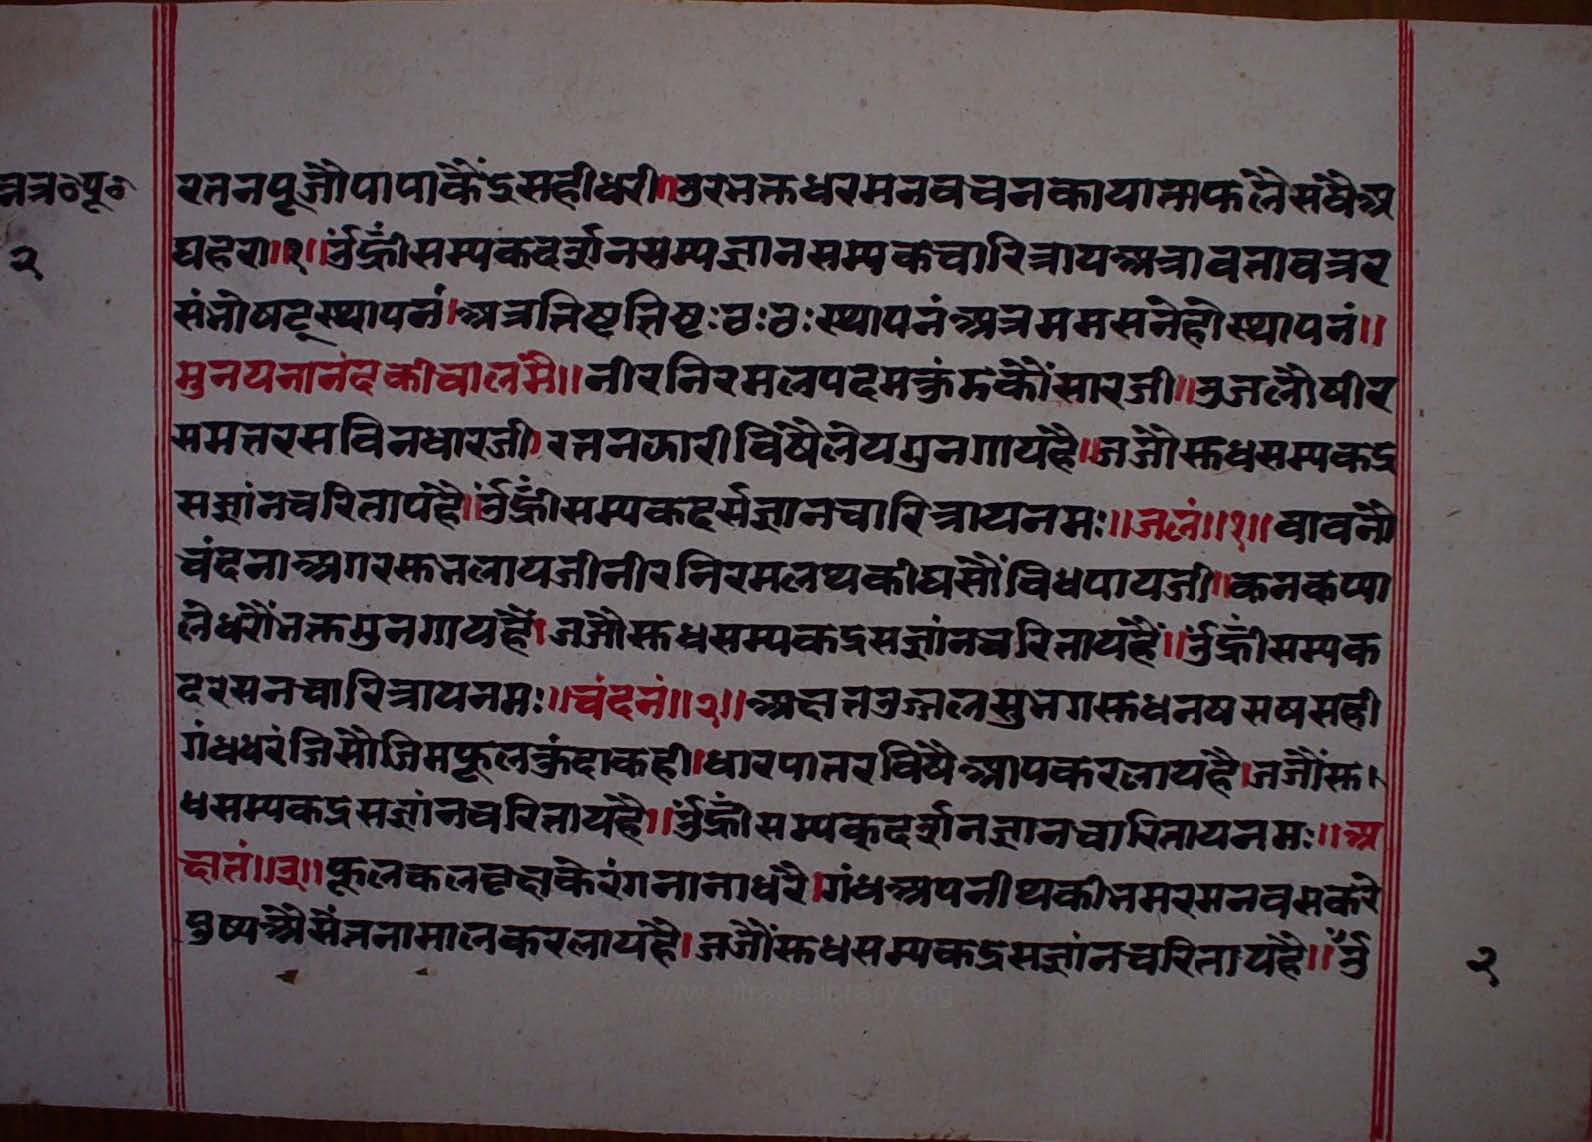 रतनपूजौपापाकैंद्रसहीधरी॥उरभक्तधरमनवचनकायाताफलैसंषैअ
घहरा॥१॥ॐह्रींसम्यकदर्शनसम्यज्ञानसम्यकचारित्रायअत्रावतावत्रर
संवोषट्स्थापनं।अत्रतिष्टतिष्टः ठः ठः स्थापनंअत्रममसनेहोस्थापनं॥
मुनयनानंदकीचालमै॥नीरनिरमलपदमकुंडकौंसारजी॥उजलौषीर
समतरसविनधारजी।रतनझारीविषैलेयगुनगायहै॥जजौस्रुधसम्यकद्र
सज्ञांनचरितायहै॥ॐह्रींसम्यकदर्सज्ञानचारित्रायनमः॥जलं॥१॥बावनौ
चंदनाअगरस्रुतलायजीनीरनिरमलथकीघसौंविधपायजी॥कनकप्या
लेधरौंभक्तगुनगायहैं।जजौस्रुधसम्यकद्रसज्ञांनचरितायहैं॥ॐह्रींसम्यक
दरसनचारित्रायनमः॥चंदनं॥२॥अक्षतउज्जलसुभगस्रुधनयसषसही
गंधधरंजिसौजिमफूलकुंदाकही।धारपातरविषैआपकरलायहै।जजौंस्रु
धसम्यकद्रसज्ञांनचरितायहै॥ॐह्रींसम्यक्दर्शनज्ञानचारितायनमः॥अ
क्षतं॥३॥फूलकलवृक्षकेरंगनानाधरै।गंधअपनीथकीभमरमनवसकरे
पुष्पअैसैंतनामालकरलायहै।जजौंस्रुधसम्यकद्रसज्ञांनचरितायहै॥ॐ
२
२